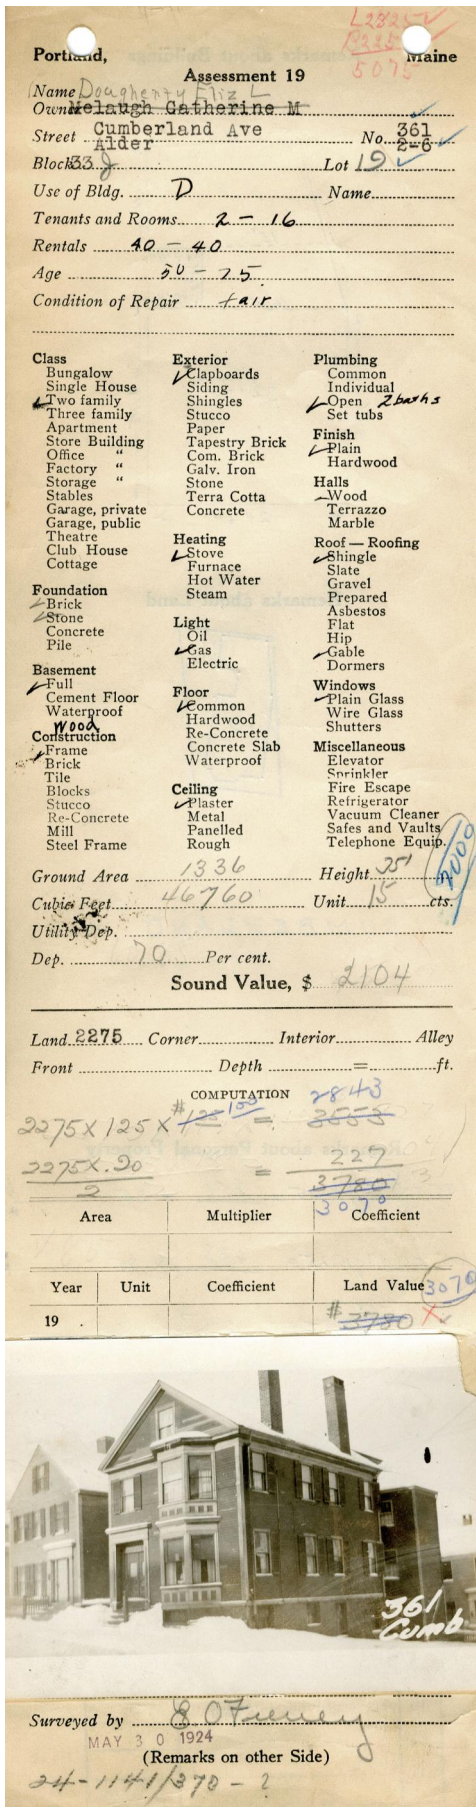 L2825
5075
Portland, Maine
Assessment 19
Name Dougherty Eliz L
Owner Melaugh Catherine M
Street Cumberland Ave No. 361
Alder 2-6
Block 33 J Lot 19
Use of Bldg. D Name
Tenants and Rooms 2 - 16
Rentals 40 - 40
Age 50 - 75
Condition of Repair fair
Class
Bungalow
Single House
Two family
Three family
Apartment
Store Building
Office "
Factory "
Storage "
Stables
Garage, private
Garage, public
Theatre
Club House
Cottage
Foundation
Brick
Stone
Concrete
Pile
Basement
Full
Cement Floor
Waterproof
Wood
Construction
Frame
Brick
Tile
Blocks
Stucco
Re-Concrete
Mill
Steel Frame
Exterior
Clapboards
Siding
Shingles
Stucco
Paper
Tapestry Brick
Com. Brick
Galv. Iron
Stone
Terra Cotta
Concrete
Heating
Stove
Furnace
Hot Water
Steam
Light
Oil
Gas
Electric
Floor
Common
Hardwood
Re-Concrete
Concrete Slab
Waterproof
Ceiling
Plaster
Metal
Panelled
Rough
Plumbing
Common
Individual
Open 2 baths
Set tubs
Finish
Plain
Hardwood
Halls
Wood
Terrazzo
Marble
Roof — Roofing
Shingle
Slate
Gravel
Prepared
Asbestos
Flat
Hip
Gable
Dormers
Windows
Plain Glass
Wire Glass
Shutters
Miscellaneous
Elevator
Sprinkler
Fire Escape
Refrigerator
Vacuum Cleaner
Safes and Vaults
Telephone Equip.
2000
Ground Area 1336 Height 35'
Cubic Feet 46760 Unit 15 cts.
Utility Dep.
Dep. 70 Per cent.
Sound Value, $ 2104
Land 2275 Corner Interior Alley
Front Depth = ft.
COMPUTATION 2843
2275 X 125 X $125 100 = 3553
2275 X .20 = 227
2 3780
3070
Area Multiplier Coefficient
Year Unit Coefficient Land Value 3070
19 . $3780
361
Cumb
Surveyed by
MAY 30 1924
(Remarks on other Side)
24-1141/370 - ?